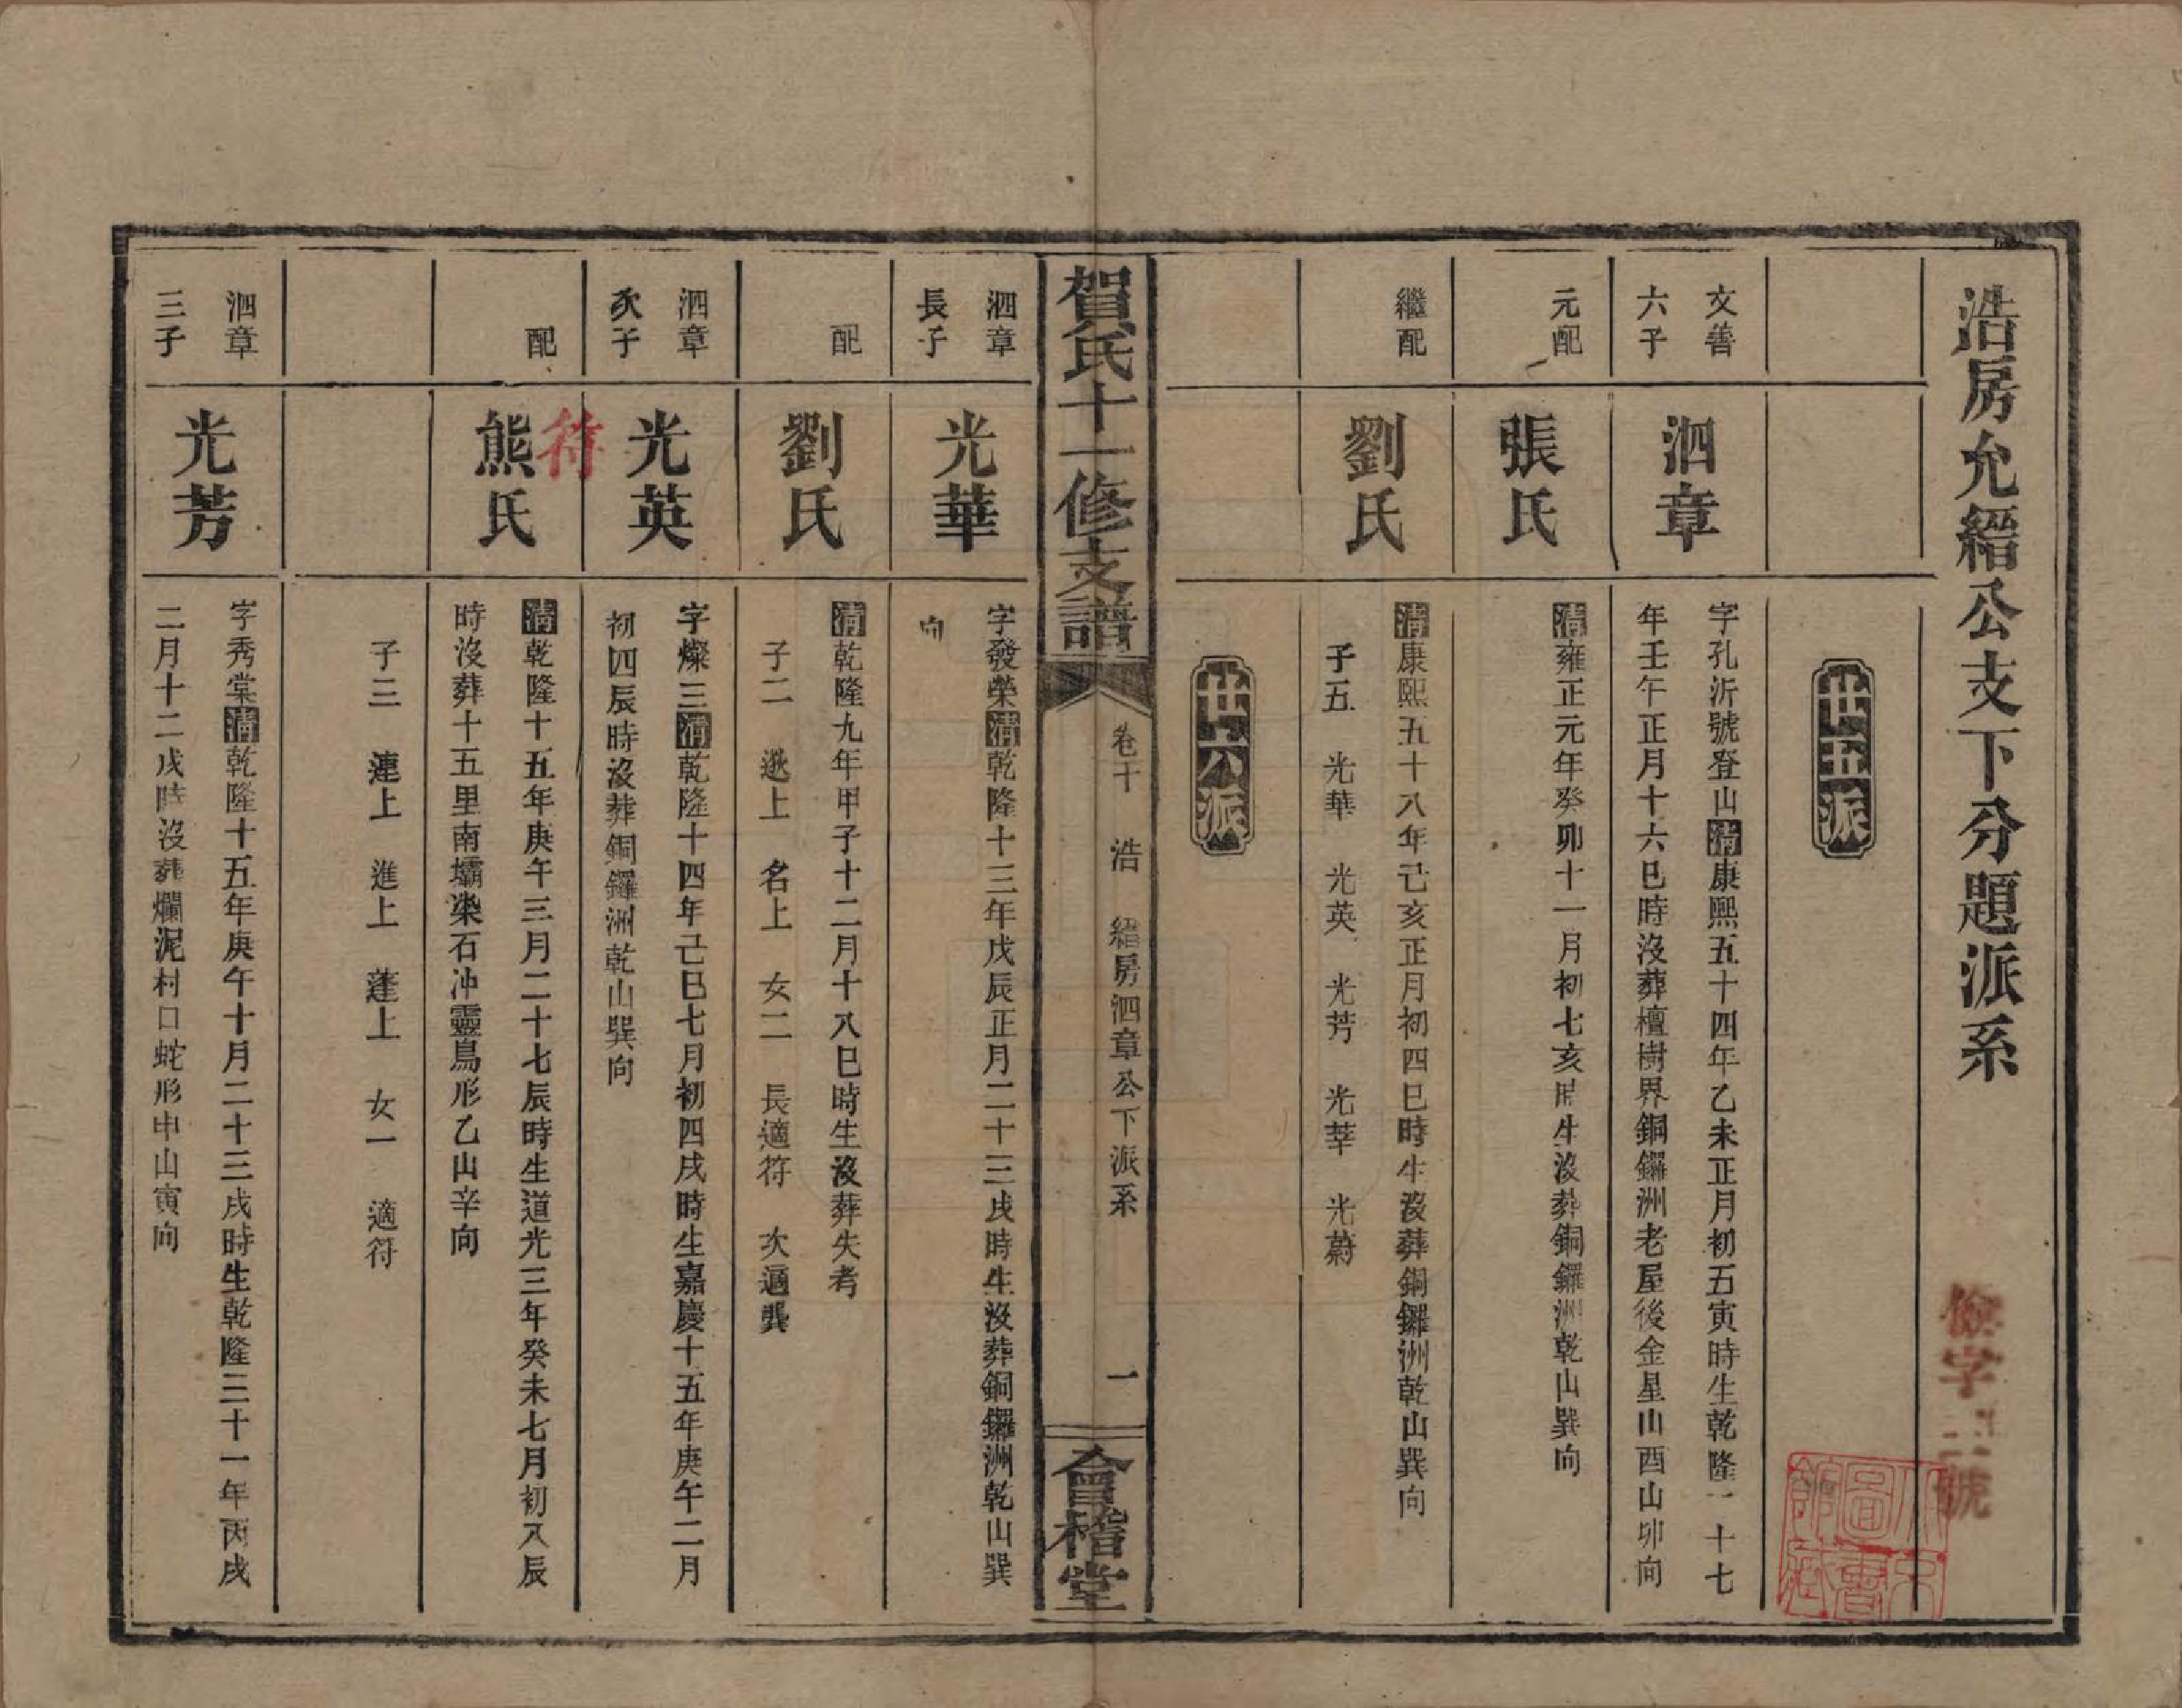 浩房允縉公支下分題派系
儉字
號
廿五派
文善
六子
泗章
字孔沂號登山清康熙五十四年乙未正月初五寅時生乾隆二十七
年壬午正月十六巳時沒葬檀樹界銅鑼洲老屋後金星山酉山卯向
元配
張氏
清雍正元年癸卯十一月初七亥時生沒葬銅鑼洲乾山巽向
繼配
劉氏
清康熙五十八年己亥正月初四巳時生沒葬銅鑼洲乾山巽向
子五 光華 光英 光芳 光莘 光蔚
廿六派
賀氏十一修支譜
卷十 浩 縉房泗章公下派系
一
會稽堂
泗章
長子
光華
字發榮清乾隆十三年戊辰正月二十三戌時生沒葬銅鑼洲乾山巽
向
配
劉氏
清乾隆九年甲子十二月十八巳時生沒葬失考
子二 遜上 名上 女二 長適符 次適龔
泗章
次子
光英
字燦三清乾隆十四年己巳七月初四戌時生嘉慶十五年庚午二月
初四辰時沒葬銅鑼洲乾山巽向
符
配
熊氏
清乾隆十五年庚午三月二十七辰時生道光三年癸未七月初八辰
時沒葬十五里南壩柒石冲靈鳥形乙山辛向
子三 連上 進上 蓬上 女一 適符
泗章
三子
光芳
字秀棠清乾隆十五年庚午十月二十三戌時生乾隆三十一年丙戌
二月十二戌時沒葬爛泥村口蛇形申山寅向